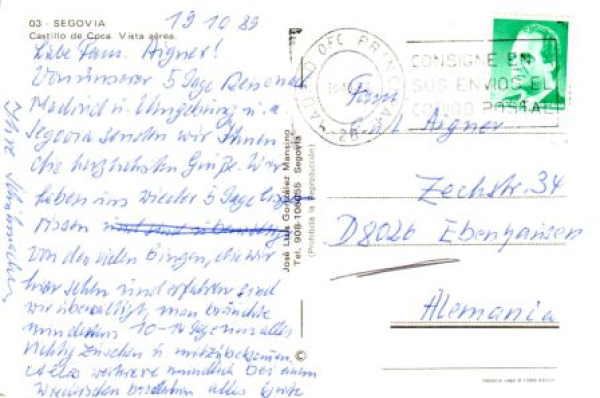 03 - SEGOVIA
Castillo de Coca. Vista aérea.
19 10 89
Liebe Fam. Aigner!
Von unserer 5 Tage Reise nach
Madrid u. Umgebung u. a.
Segovia senden wir Ihnen
die herzlichsten Grüße. Wir
haben uns wieder 5 Tage
rissen
von den vielen Dingen, die wir
hier sehn und erfahren sind
wir überwältigt, man bräuchte
mindestens 10-14 Tage um alles
richtig zu sehen u mitzubekommen.
Alles weitere mündlich bei einem
Wiedersehen alles Gute
Ihre
José Luis González Mansino
Tel. 908-106055 Segovia
(Prohibida la reproducción)
©
MADRID OFC PRINCIPAL
28
CONSIGNE EN
SUS ENVIOS EL
CODIGO POSTAL
Fam
Aigner
Zechstr. 34
D8026 Ebenhausen
Alemania